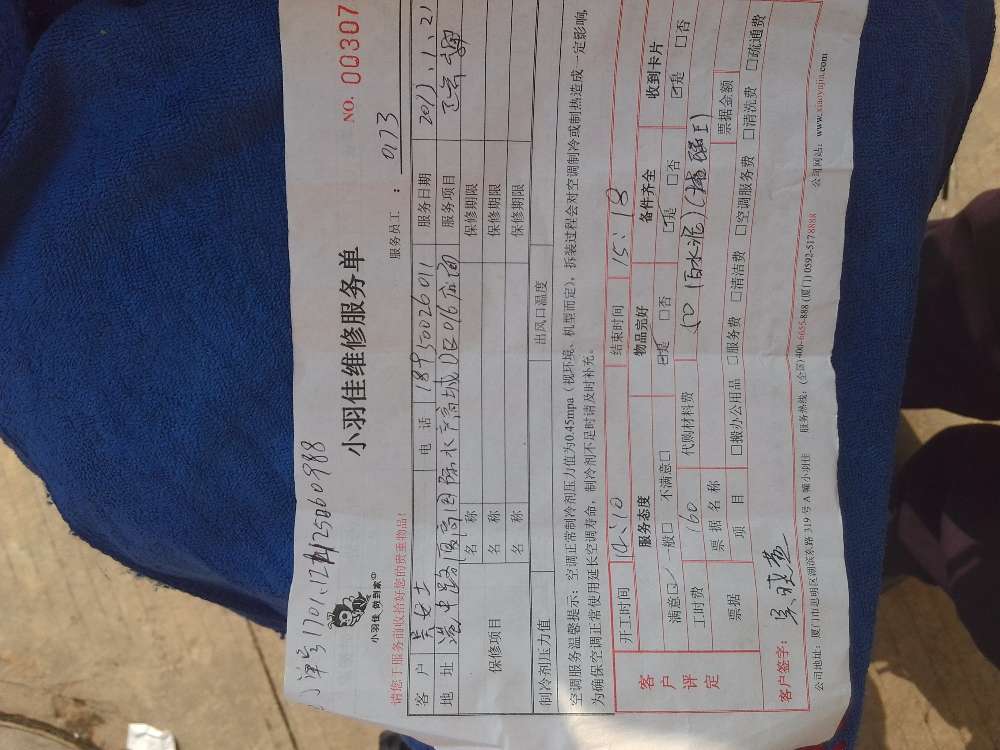 单号170112
小羽佳 做到家
小羽佳维修服务单
NO. 00307
请您于服务前收拾好您的贵重物品!
服务员工: 0173
客户 吴女士 电话 18950026011 服务日期
地址 港中路闽南国际水产商城 服务项目
保修项目 名称 保修期限
名称 保修期限
名称 保修期限
制冷剂压力值 出风口温度
空调服务温馨提示: 空调正常制冷剂压力值为0.45mpa (视环境、机型而定), 拆装过程会对空调制冷或制热造成一定影响,
为确保空调正常使用延长空调寿命, 制冷剂不足时请及时补充。
客户评定
开工时间 结束时间 15:18
服务态度 物品完好 备件齐全 收到卡片
满意☑ 一般□ 不满意□ ☑是 □否 ☑是 □否 ☑是 □否
工时费 160 代购材料费 50 (白水泥)
票据 票据名称 票据金额
项目 □搬办公用品 □服务费 □清洁费 □空调服务费 □清洗费 □疏通费
客户签字:
公司地址: 厦门市思明区湖滨东路 319 号 A 幢小羽佳 服务热线: (全国) 400-6655-888 (厦门) 0592-5178888 公司网站: www.xiaoyujia.com